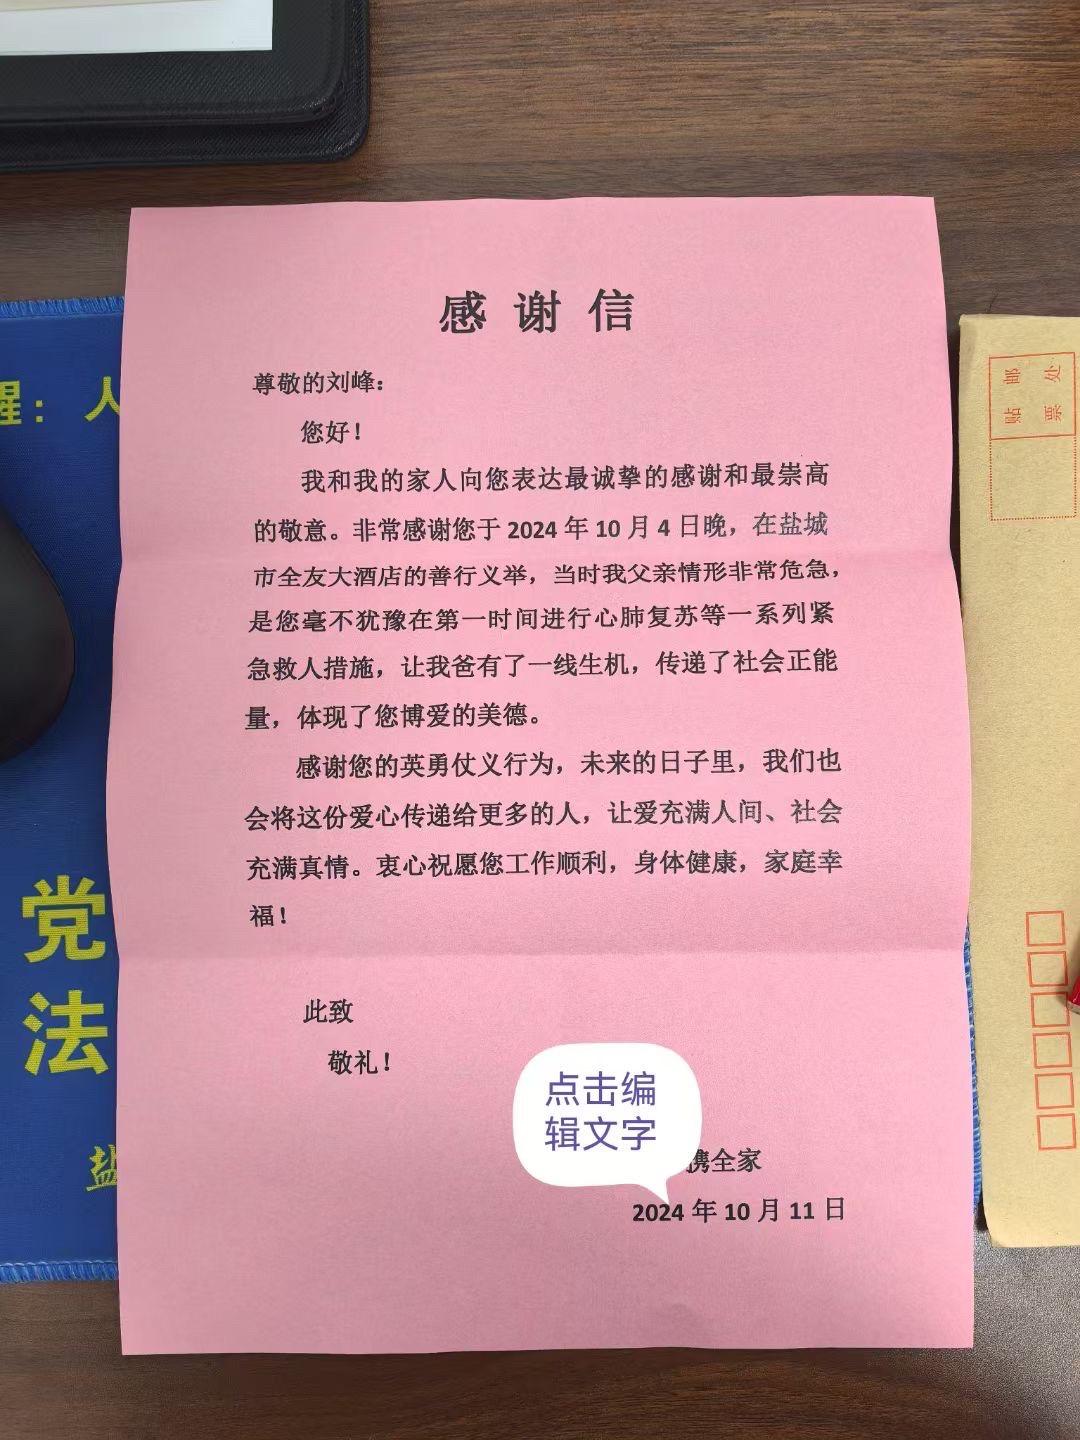 感谢信
尊敬的刘峰：
您好！
我和我的家人向您表达最诚挚的感谢和最崇高
的敬意。非常感谢您于 2024 年 10 月 4 日晚，在盐城
市全友大酒店的善行义举，当时我父亲情形非常危急，
是您毫不犹豫在第一时间进行心肺复苏等一系列紧
急救人措施，让我爸有了一线生机，传递了社会正能
量，体现了您博爱的美德。
感谢您的英勇仗义行为，未来的日子里，我们也
会将这份爱心传递给更多的人，让爱充满人间、社会
充满真情。衷心祝愿您工作顺利，身体健康，家庭幸
福！
此致
敬礼！
点击编
辑文字
携全家
2024 年 10 月 11 日
醒：人
党
法
盐
贴邮
票处